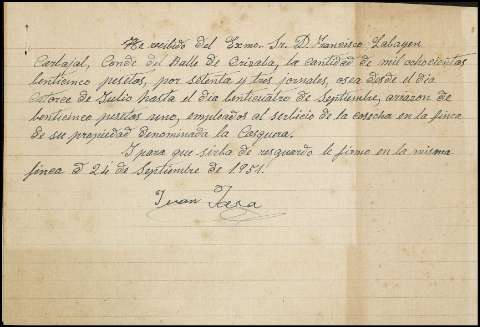 He recibido del Exmo. Sr. D. Francisco Labayen
Carbajal, Conde del Balle de Orizaba, la cantidad de mil ochocientas
benticinco pesetas, por setenta y tres jornales, osea desde el dia
catorce de Julio hasta el dia benticuatro de Septiembre, arrazon de
benticinco pesetas uno, empleados al serbicio de la cosecha en la finca
de su propiedad denominada la Casquera.
I para que sirba de resguardo le firmo en la misma
finca a 24 de Septiembre de 1951.
Juan